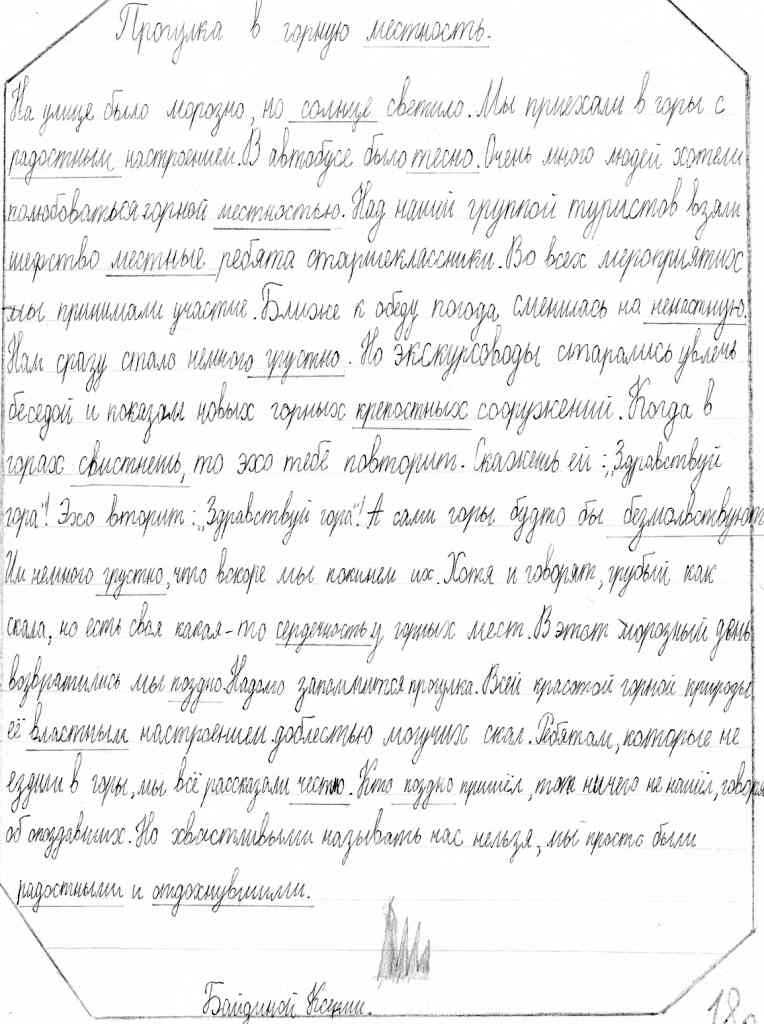 Прогулка в горную местность.
На улице было морозно, но солнце светило. Мы приехали в горы с
радостным настроением. В автобусе было тесно. Очень много людей хотели
полюбоваться горной местностью. Над нашей группой туристов взяли
шефство местные ребята старшеклассники. Во всех мероприятиях
мы принимали участие. Ближе к обеду погода сменилась на ненастную.
Нам сразу стало немного грустно. Но экскурсоводы старались увлечь
беседой и показали новых горных крепостных сооружений. Когда в
горах свистнешь, то эхо тебе повторит. Скажешь ей: „Здравствуй
гора"! Эхо вторит: „Здравствуй гора"! А сами горы будто бы безмолвствуют.
Им немного грустно, что вскоре мы покинем их. Хотя и говорят, грубый как
скала, но есть своя какая-то сердечность у горных мест. В этот морозный день
возвратились мы поздно. Надолго запомнится прогулка. Всей красотой горной природы,
её властным настроением доблестью могучих скал. Ребятам, которые не
ездили в горы, мы всё рассказали честно. Кто поздно пришёл, тот ничего не нашёл, говорят
об опоздавших. Но хвастливыми называть нас нельзя, мы просто были
радостными и отдохнувшими.
Байдиной Ксении.
18